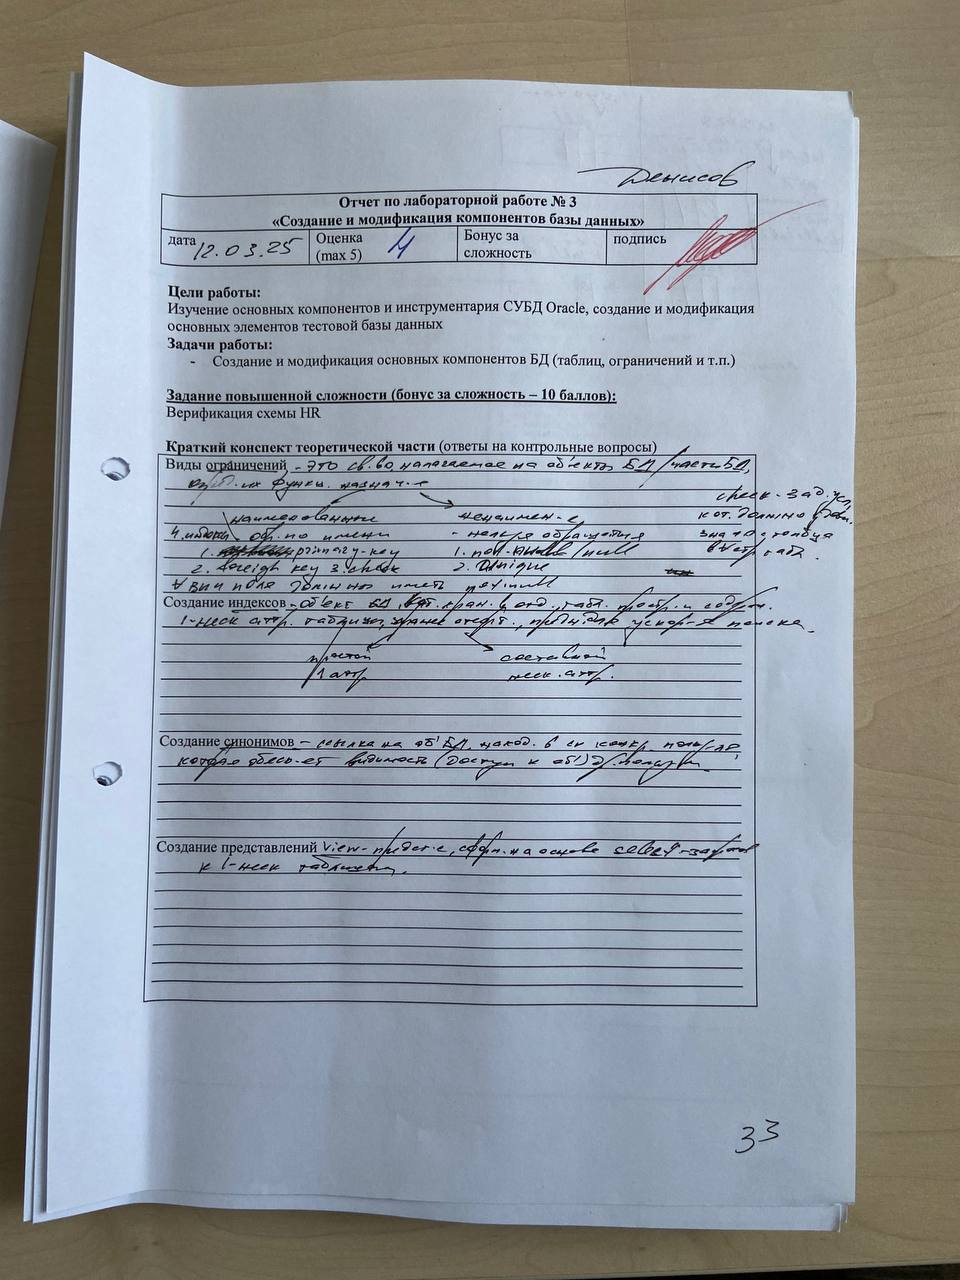 Денисов
Отчет по лабораторной работе № 3
«Создание и модификация компонентов базы данных»
дата 12.03.25 Оценка (max 5) 4 Бонус за сложность подпись
Цели работы:
Изучение основных компонентов и инструментария СУБД Oracle, создание и модификация
основных элементов тестовой базы данных
Задачи работы:
- Создание и модификация основных компонентов БД (таблиц, ограничений и т.п.)
Задание повышенной сложности (бонус за сложность – 10 баллов):
Верификация схемы HR
Краткий конспект теоретической части (ответы на контрольные вопросы)
Виды ограничений - это св-во, налагаемое на объекты БД/части БД,
их функц. назнач-е
check - зад. усл,
наименованные ненаимен-е кот. должно
обр. по имени - нельзя обращаться знач-е столбца
1. primary-key 1. null
2. foreign key 3. check 2. Unique
поля должны иметь
Создание индексов - объект БД, кот. хран. в отд. табл. простр. и содерж.
1-неск атр. таблицы, ускор-я поиска.
простой составной
1 атр неск. атр.
Создание синонимов - ссылка на об. БД, наход. в сх конкр. польз-ля,
которая обесп-ет видимость (доступ к об.)
Создание представлений view - предст-е, сформ. на основе select-запроса
к 1-неск таблицам.
33